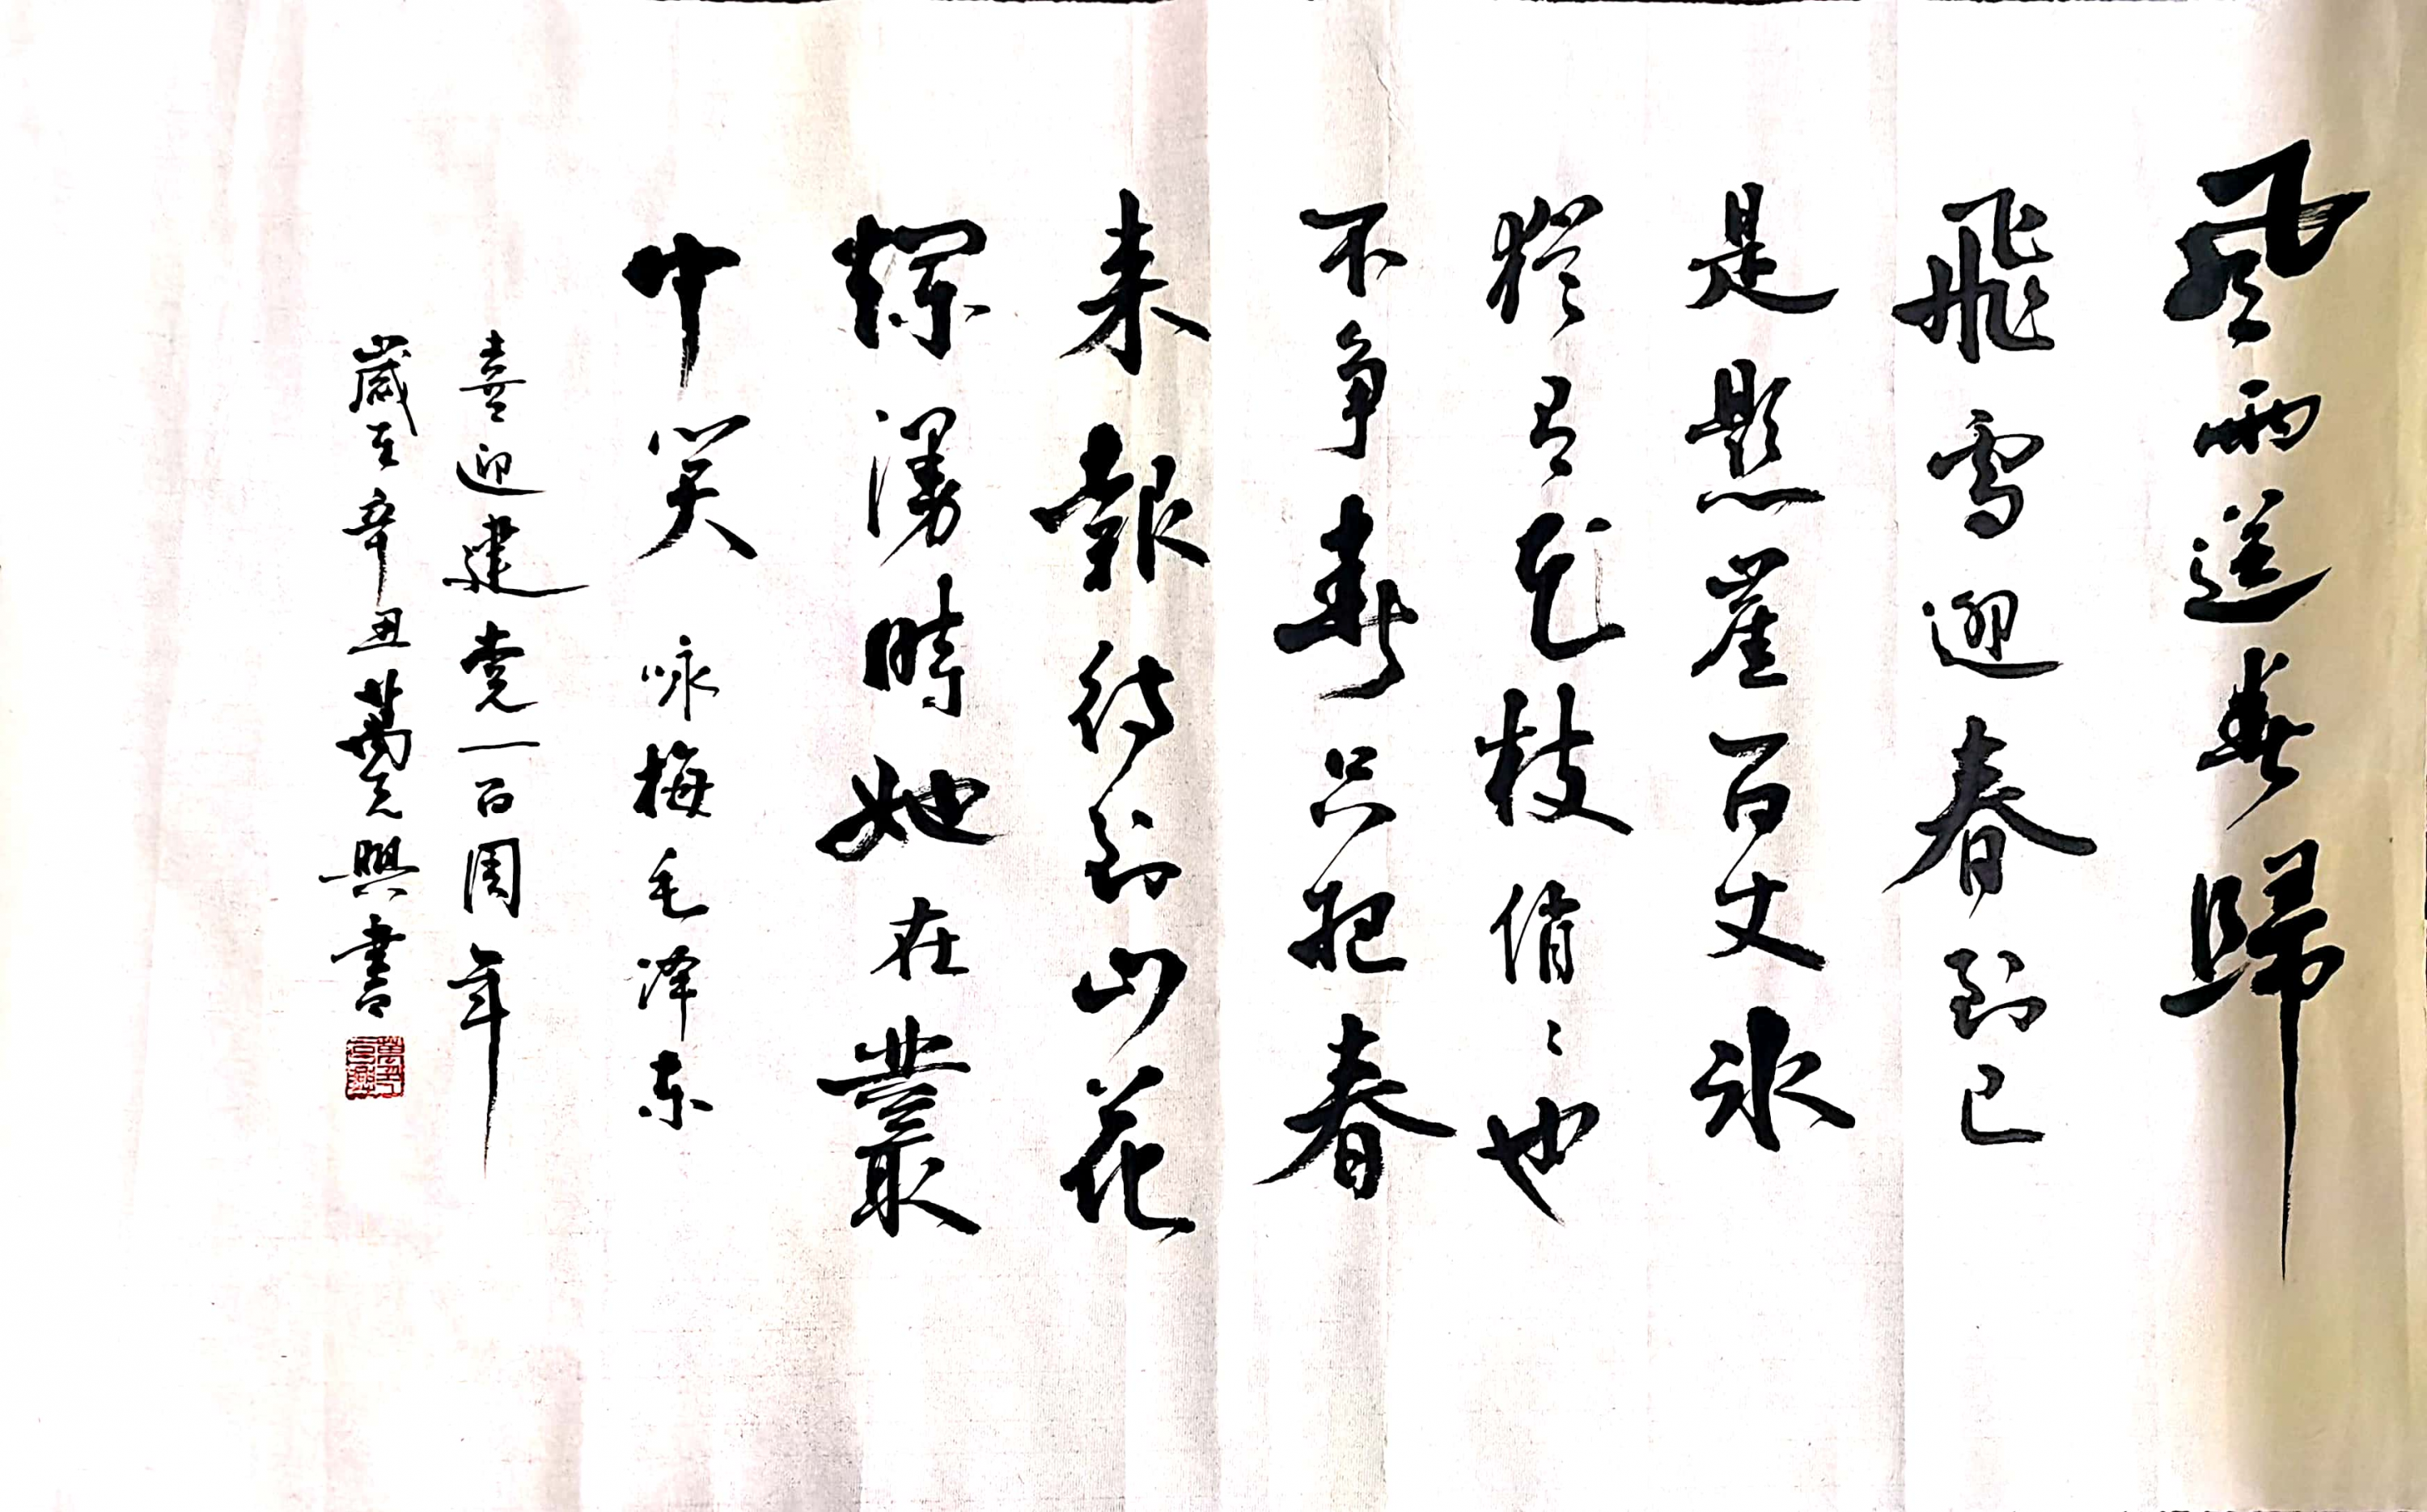 风雨送春歸
飛雪迎春到已
是懸崖百丈冰
猶有花枝俏〻也
不争春只把春
来報待到山花
爛漫時她在叢
中笑 咏梅毛泽东
喜迎建党一百周年
歲至辛丑萬元興書